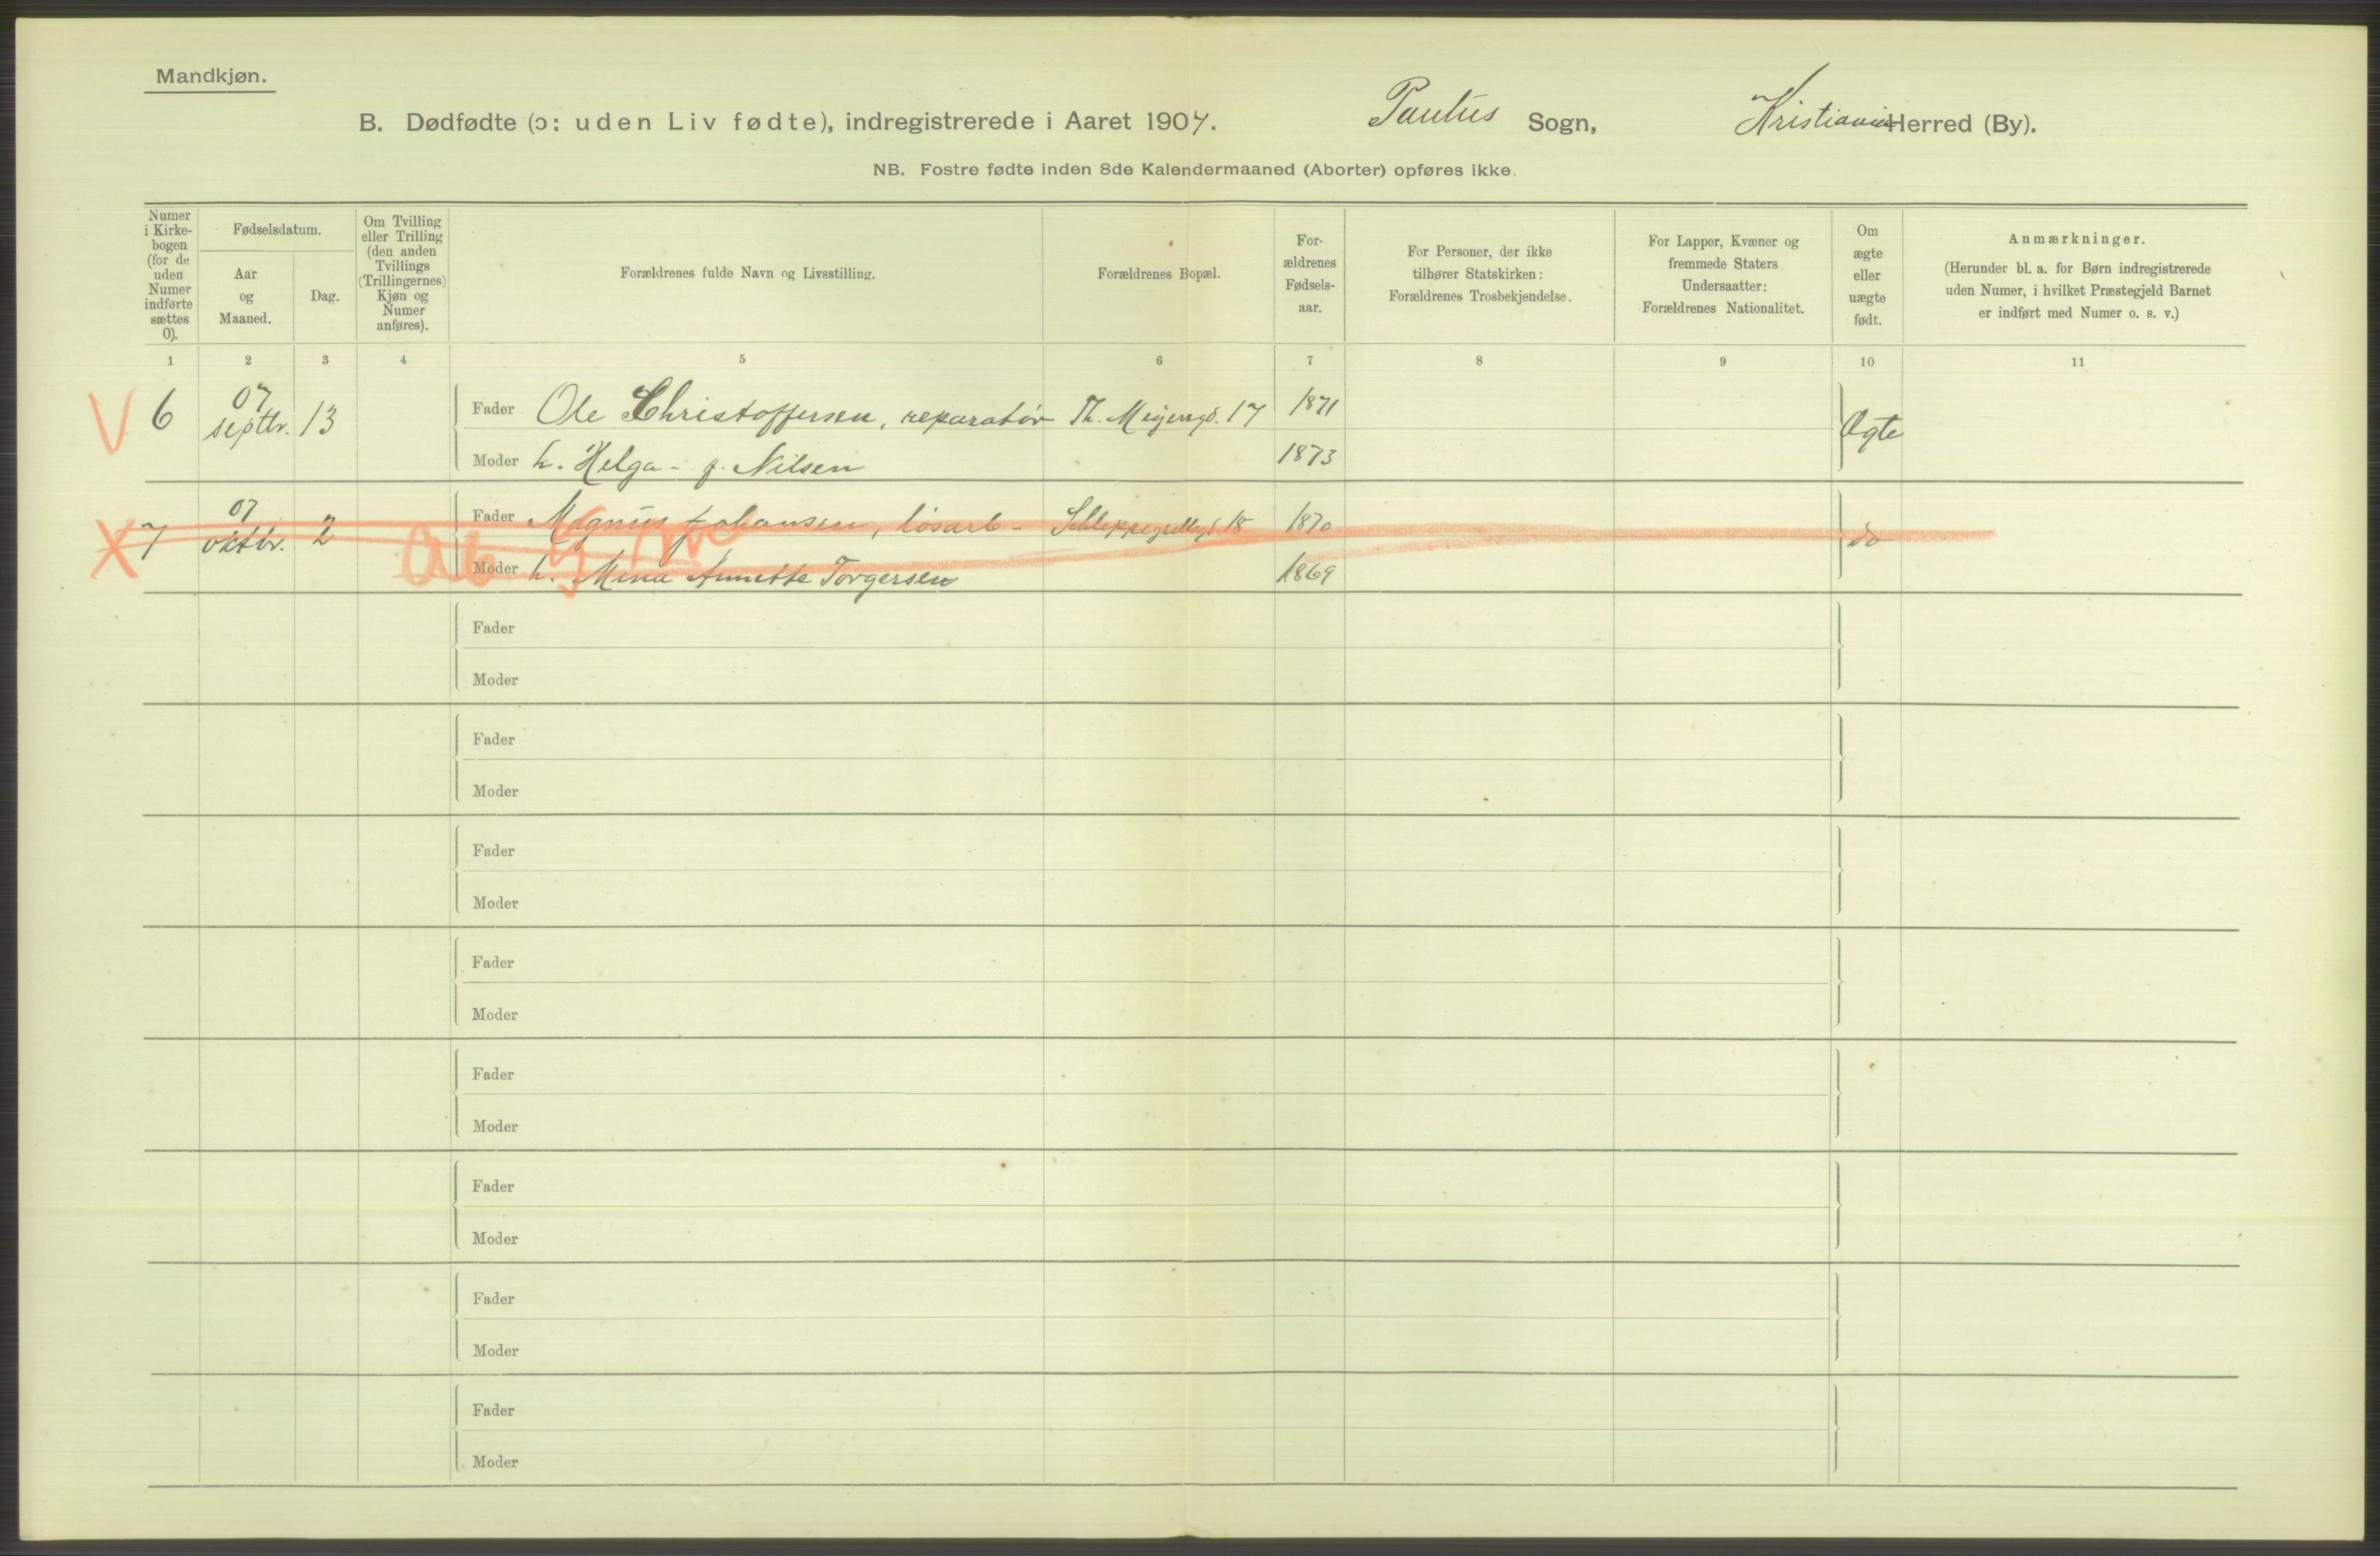 Mandkjøn.
B. Dødfødte (ɔ: uden Liv fødte), indregistrerede i Aaret 1907. Paulus Sogn, Kristiania Herred (By).
NB. Fostre fødte inden 8de Kalendermaaned (Aborter) opføres ikke.
Numer i Kirke-bogen (for de uden Numer indførte sættes 0).
Fødselsdatum.
Aar og Maaned.
Dag.
Om Tvilling eller Trilling (den anden Tvillings (Trillingernes) Kjøn og Numer anføres).
Forældrenes fulde Navn og Livsstilling.
Forældrenes Bopæl.
For-ældrenes Fødsels-aar.
For Personer, der ikke tilhører Statskirken: Forældrenes Trosbekjendelse.
For Lapper, Kvæner og fremmede Staters Undersaatter: Forældrenes Nationalitet.
Om ægte eller uægte født.
Anmærkninger.
(Herunder bl. a. for Børn indregistrerede uden Numer, i hvilket Præstegjeld Barnet er indført med Numer o. s. v.)
1 2 3 4 5 6 7 8 9 10 11
V 6 07 septbr. 13 Fader Ole Christoffersen, reparatør Th. Meyersgd. 17 1871 Ægte
Moder h. Helga - f. Nilsen 1873
X 7 07 oktbr. 2 Fader Magnus Johansen, løsarb - Schleppegrellsgd. 18 1870 do
Ab 5
Moder h. Mina Annette Torgersen 1869
Fader
Moder
Fader
Moder
Fader
Moder
Fader
Moder
Fader
Moder
Fader
Moder
Fader
Moder
Fader
Moder